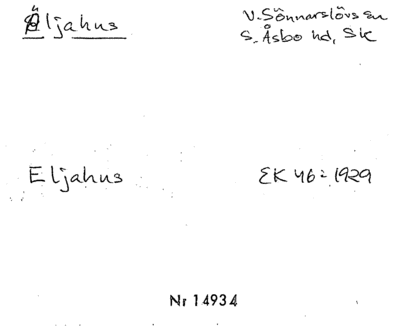 Äljahus
V. Sönnarslövs sn
S. Åsbo hd, Sk
Eljahus
EK 46 : 1929
Nr 14934